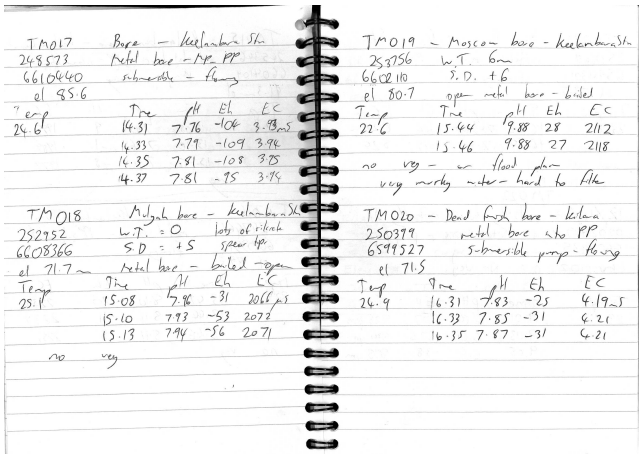 TM017 Bore - Keelambara Stn
248573 Metal bore - PP
6610440 submersible - flowing
el 85.6
Temp Time pH Eh EC
24.6 14.31 7.76 -104 3.93mS
14.33 7.79 -109 3.94
14.35 7.81 -108 3.95
14.37 7.81 -95 3.94
TM018 Mulgah bore - Keelambara Stn
252952 W.T. = 0 lots of
6608366 S.D = +5 spear
el 71.7m Metal bore - bailed - open
Temp Time pH Eh EC
25.1 15.08 7.96 -31 2066 µS
15.10 7.93 -53 2072
15.13 7.94 -56 2071
no veg
TM019 - Moscow bore - Keelambara Stn
253756 W.T. 6m
6602110 S.D. +6
el 80.7 open metal bore - bailed
Temp Time pH Eh EC
22.6 15.44 9.88 28 2112
15.46 9.88 27 2118
no veg - on flood plain
very murky water - hard to filter
TM020 - Dead finish bore - Kilara
250399 metal bore into PP
6599527 submersible pump - flowing
el 71.5
Temp Time pH Eh EC
24.9 16.31 7.83 -25 4.19mS
16.33 7.85 -31 4.21
16.35 7.87 -31 4.21